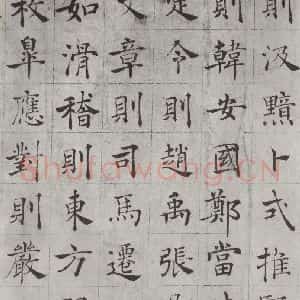 則汲黯卜式推
則韓安國鄭當
定令則趙禹張
文章則司馬遷
如滑稽則東方
枚皐應對則嚴
Shufawang.CN